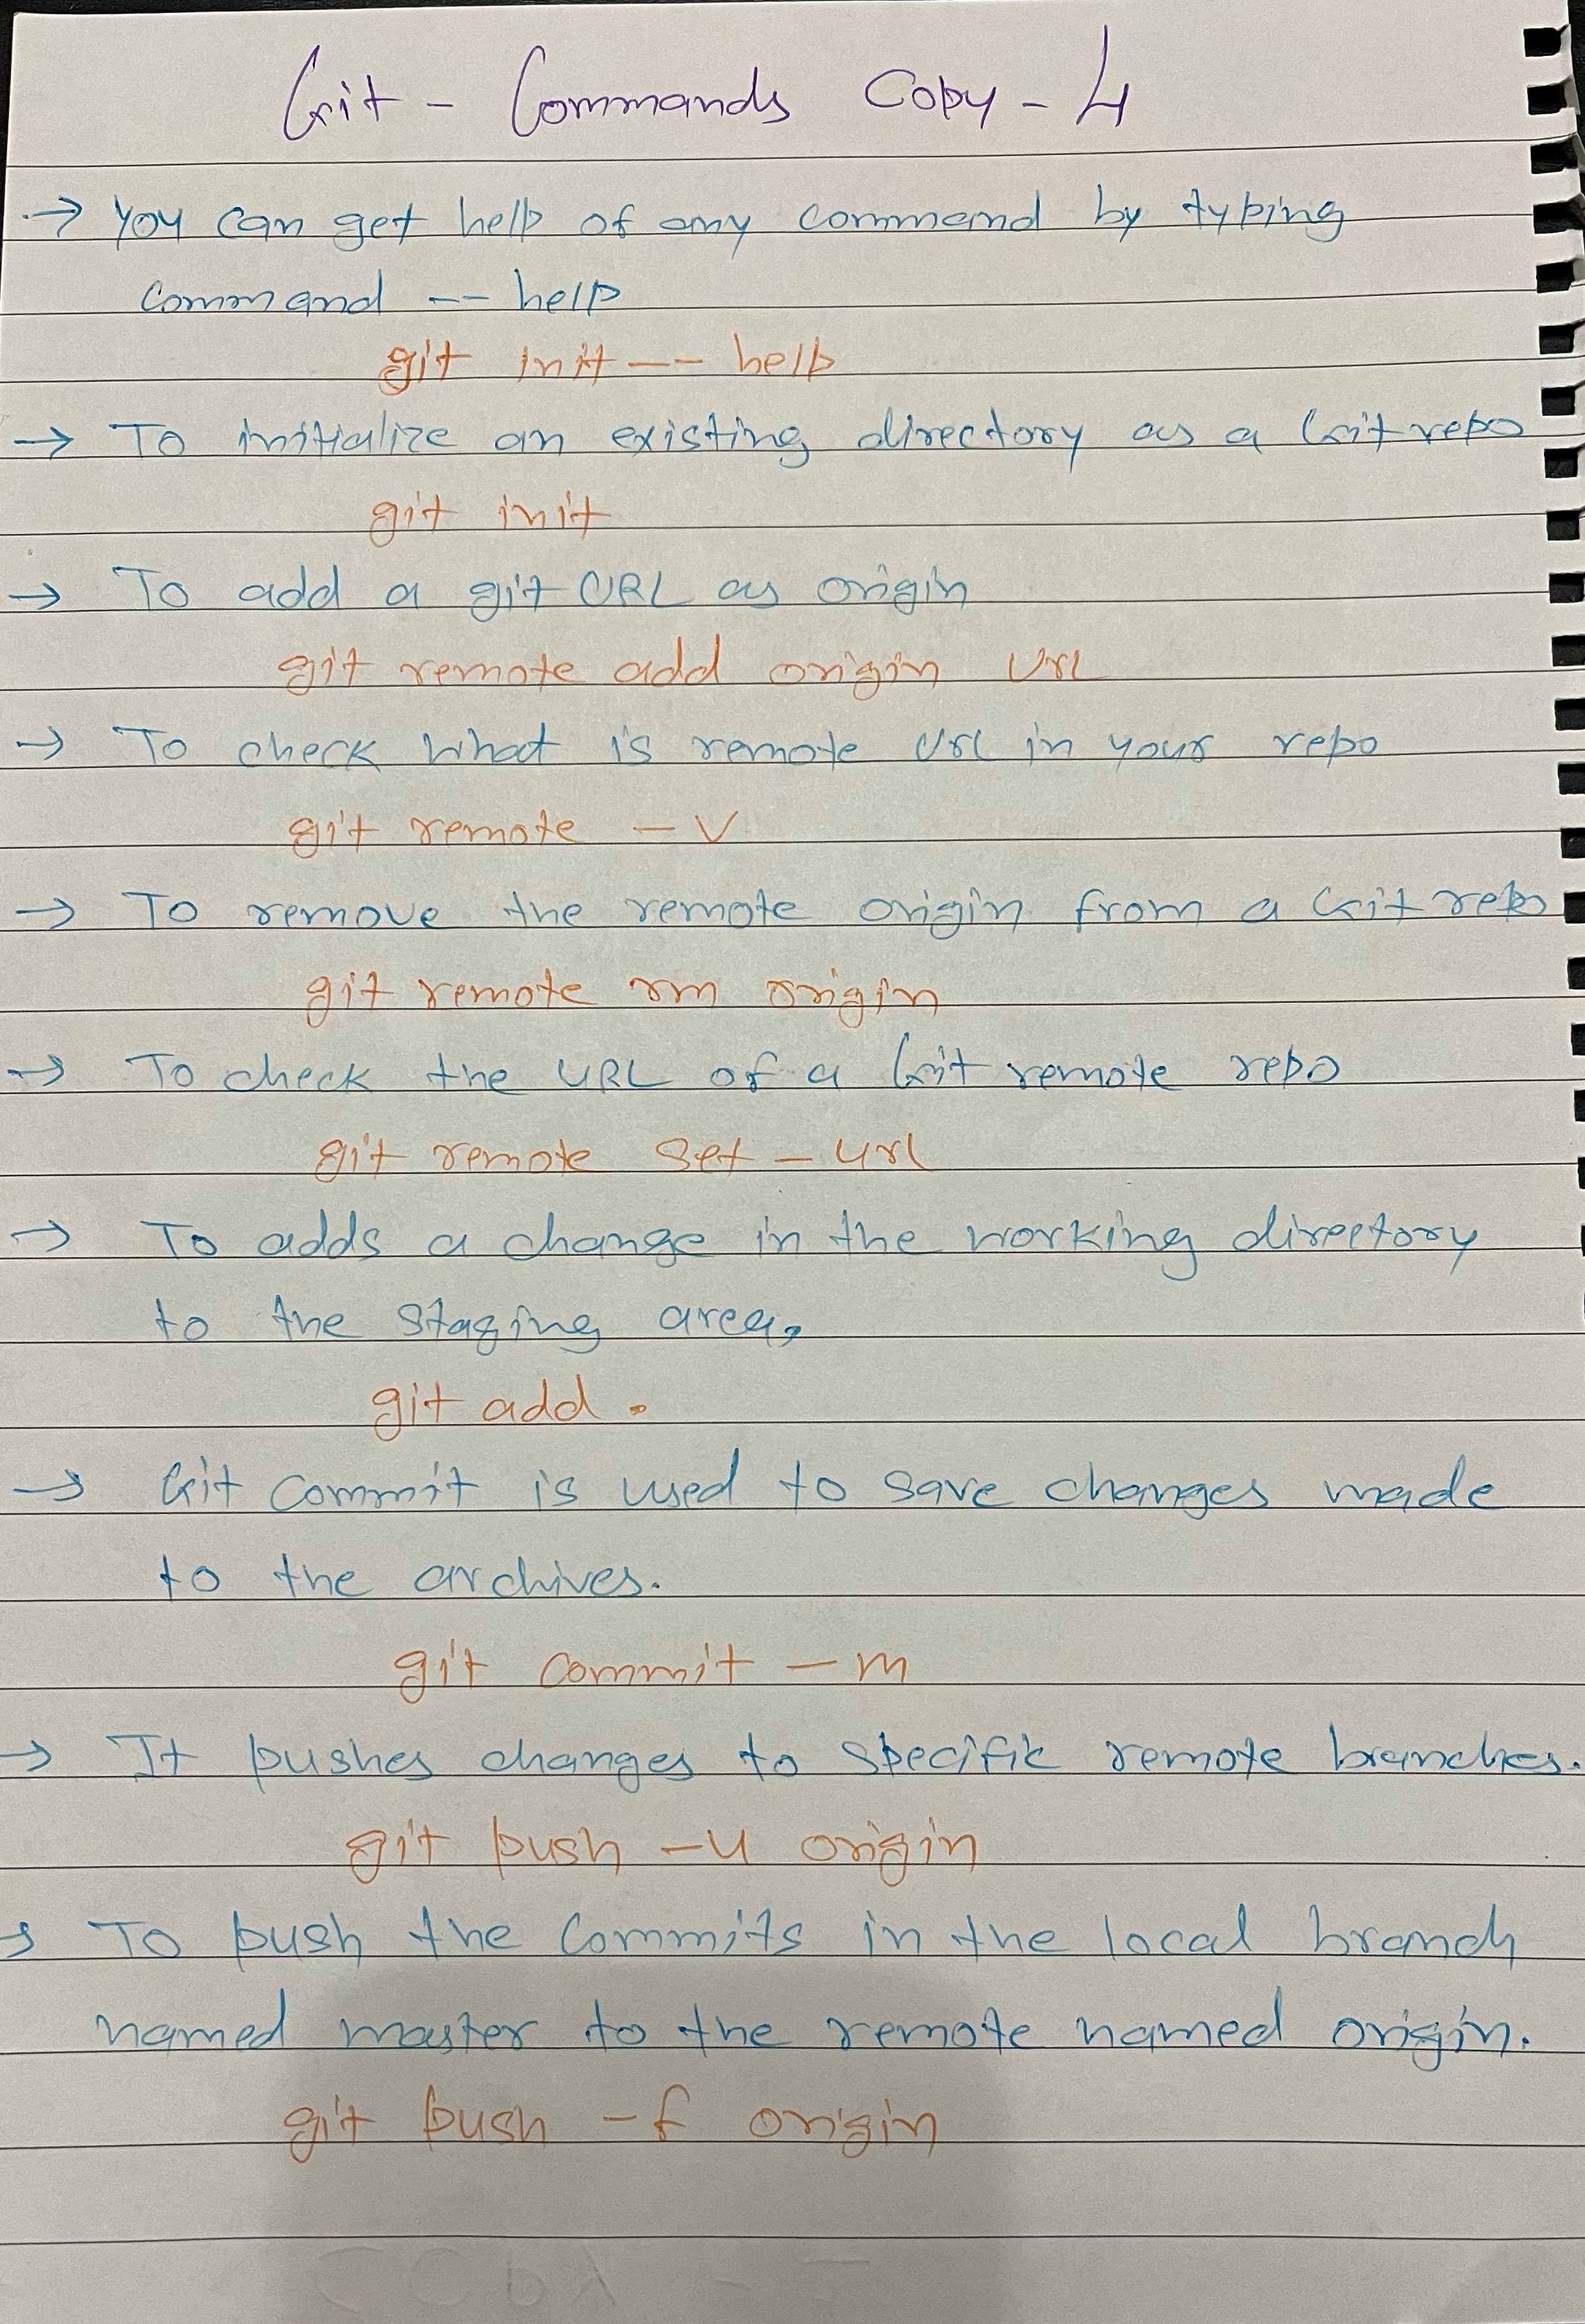 Git - Commands Copy - 4
→ You can get help of any command by typing
command -- help
git init -- help
→ To initialize an existing directory as a Git repo
git init
→ To add a git URL as origin
git remote add origin url
→ To check what is remote url in your repo
git remote - v
→ To remove the remote origin from a Git repo
git remote rm origin
→ To check the URL of a Git remote repo
git remote set - url
→ To adds a change in the working directory
to the staging area,
git add .
→ Git commit is used to save changes made
to the archives.
git commit - m
→ It pushes changes to specific remote branches.
git push -u origin
→ To push the commits in the local branch
named master to the remote named origin.
git push -f origin